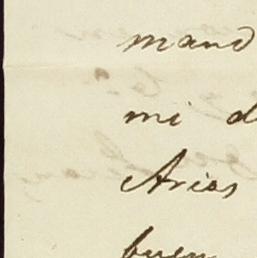 mand
mi d
Arias
buen